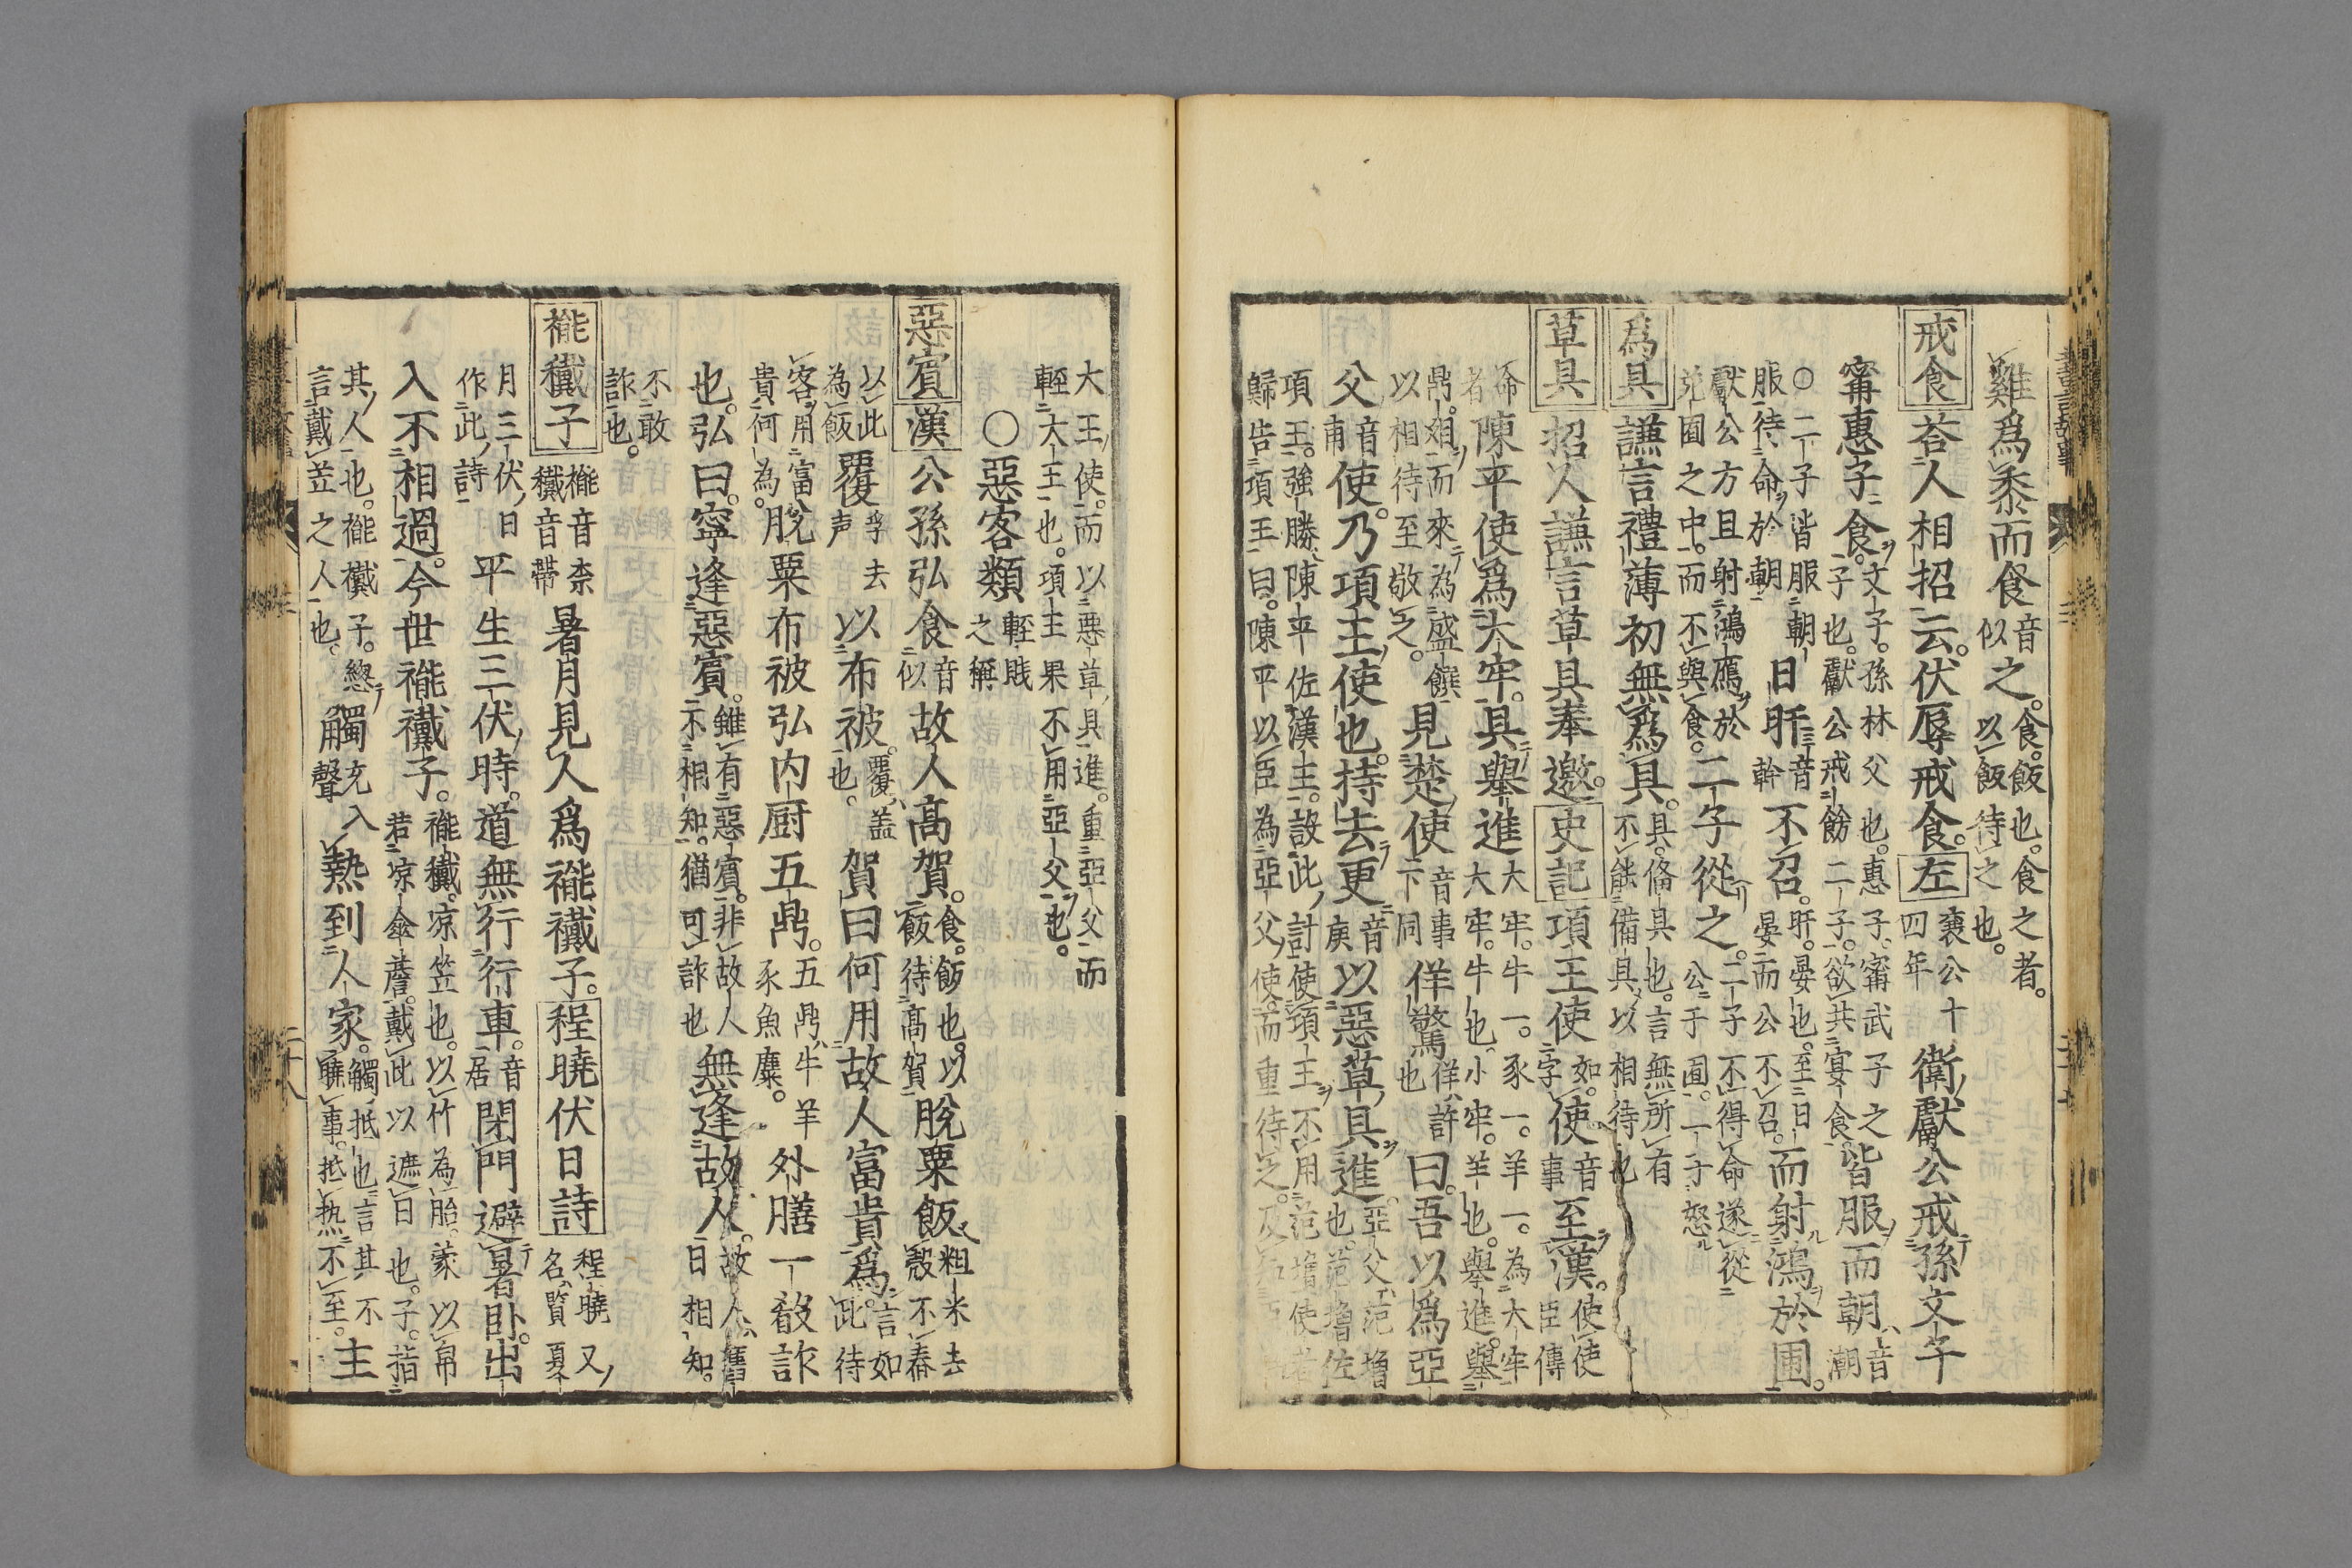 雞爲黍而食音似之。食。飯也。食之者。以飯待之也。
戒食 荅人相招云。伏辱戒食。左 襄公十四年 衛獻公戒孫文子
甯惠子食。文子。孫林父也。惠子、甯武子之子也。獻公戒飭二子。欲共宴食。皆服而朝音潮
○二子皆服朝服待命於朝 日旰音幹不召。旰。晏也。至日晏而公不召。而射鴻於囿。
獻公方且射鴻鴈於苑囿之中。而不與食。二子從之。二子不得命遂從公于囿。二子怒
爲具 謙言禮薄初無爲具。具。俻具也。言無所有不能備具以相待也
草具 招人謙言草具奉邀。史記 項王使如字使音事至漢。使使臣傳
命者陳平使爲太牢。具舉進大牢。牛一。豕一。羊一。為大牢大牢。牛也。小牢。羊也。舉進。舉
鼎俎而來為盛饌以相待至敬之。見楚使音事下同佯驚佯、許也曰。吾以爲亞
父音甫使。乃項王使也。持去更音庚以惡草具進。亞父、范增也。范增佐
項王。強勝、陳平佐漢王。設此計使項王不用范增使者
歸告項王曰。陳平以臣為亞父使。而重待之。及
大王使。而以惡草具進。重亞父而
輕大王也。項王果不用亞父也。
○惡客類輕賎之稱
惡賓 漢 公孫弘食音似故人髙賀。食。飯也。以飯待髙賀脫粟飯粗米去殼不舂
以此為飯覆孚去声以布被。覆、盖也。賀曰何用故人富貴爲。言如此待
客用富貴何為。脫粟布被弘内厨五鼎。五鼎、牛羊豕魚麋。外膳一殽詐
也。弘曰。寧逢惡賓。雖有惡賓。非故人不相知。猶可詐也無逢故人。故人、舊日相知。
不敢詐也。
褦襶子 褦音柰襶音帶暑月見人爲褦襶子。程曉伏日詩 程曉又名、覧夏
月三伏日作此詩平生三伏時。道無行行車。音居閉門避暑卧。出
入不相過。今世褦襶子。褦襶。凉笠也。以竹為胎。蒙以帛若凉傘簷。戴此以遮日也。子。指
其人也。褦襶子。戴笠之人也。言觸充聲入熱到人家。觸、抵也言其不曉事。抵热不至。主